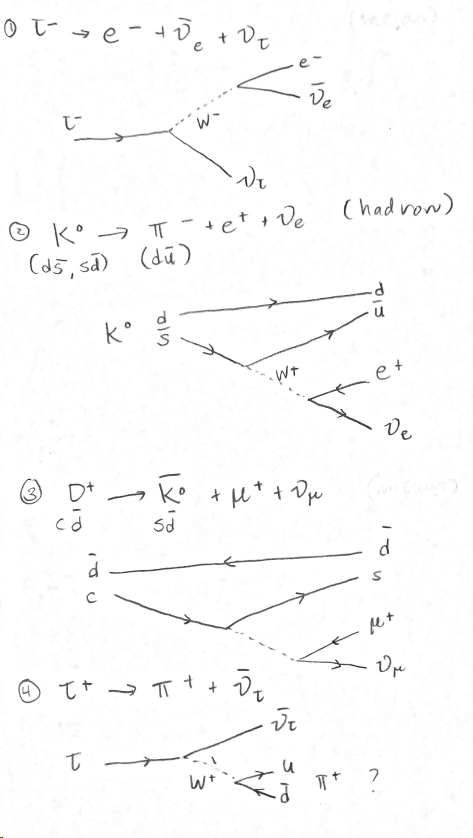 ① τ⁻ → e⁻ + ν̄e + ντ
e⁻
ν̄e
τ⁻
W⁻
ντ
② K⁰ → π⁻ + e⁺ + νe (hadron)
(ds̄, sd̄) (dū)
d
ū
K⁰ d
s̄
W⁺
e⁺
νe
③ D⁺ → K̄⁰ + μ⁺ + νμ
cd̄ sd̄
d̄
d̄
c
s
μ⁺
νμ
④ τ⁺ → π⁺ + ν̄τ
ν̄τ
τ
W⁺
u
d̄ π⁺ ?